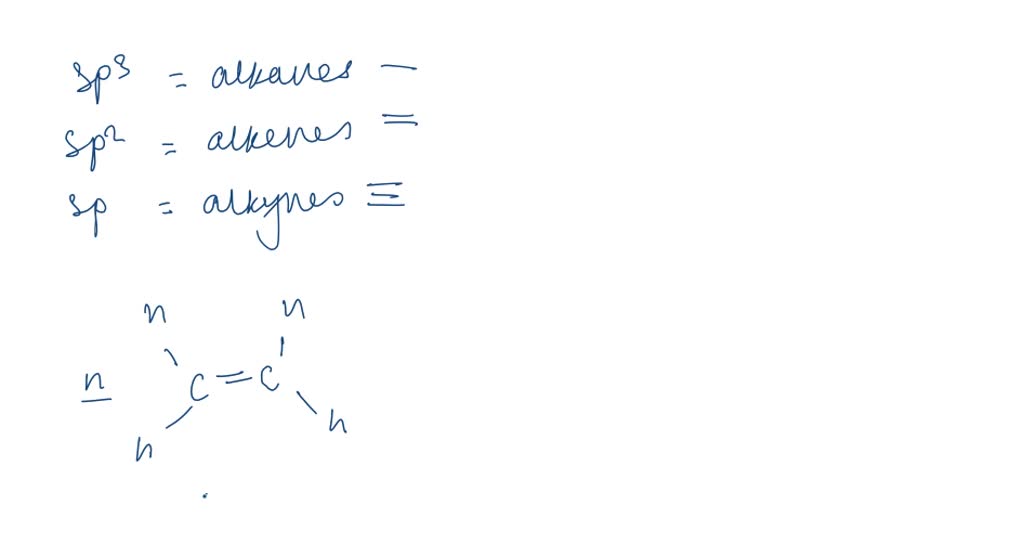 sp³ = alkanes —
sp² = alkenes =
sp = alkynes ≡
n n
n C=C
n h